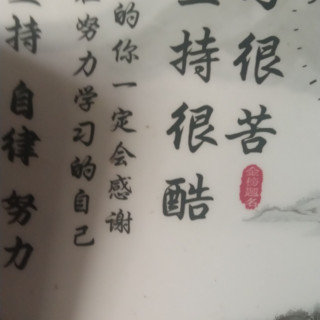 很苦
持很酷
金榜题名
的你一定会感谢
努力学习的自己
持 自律 努力